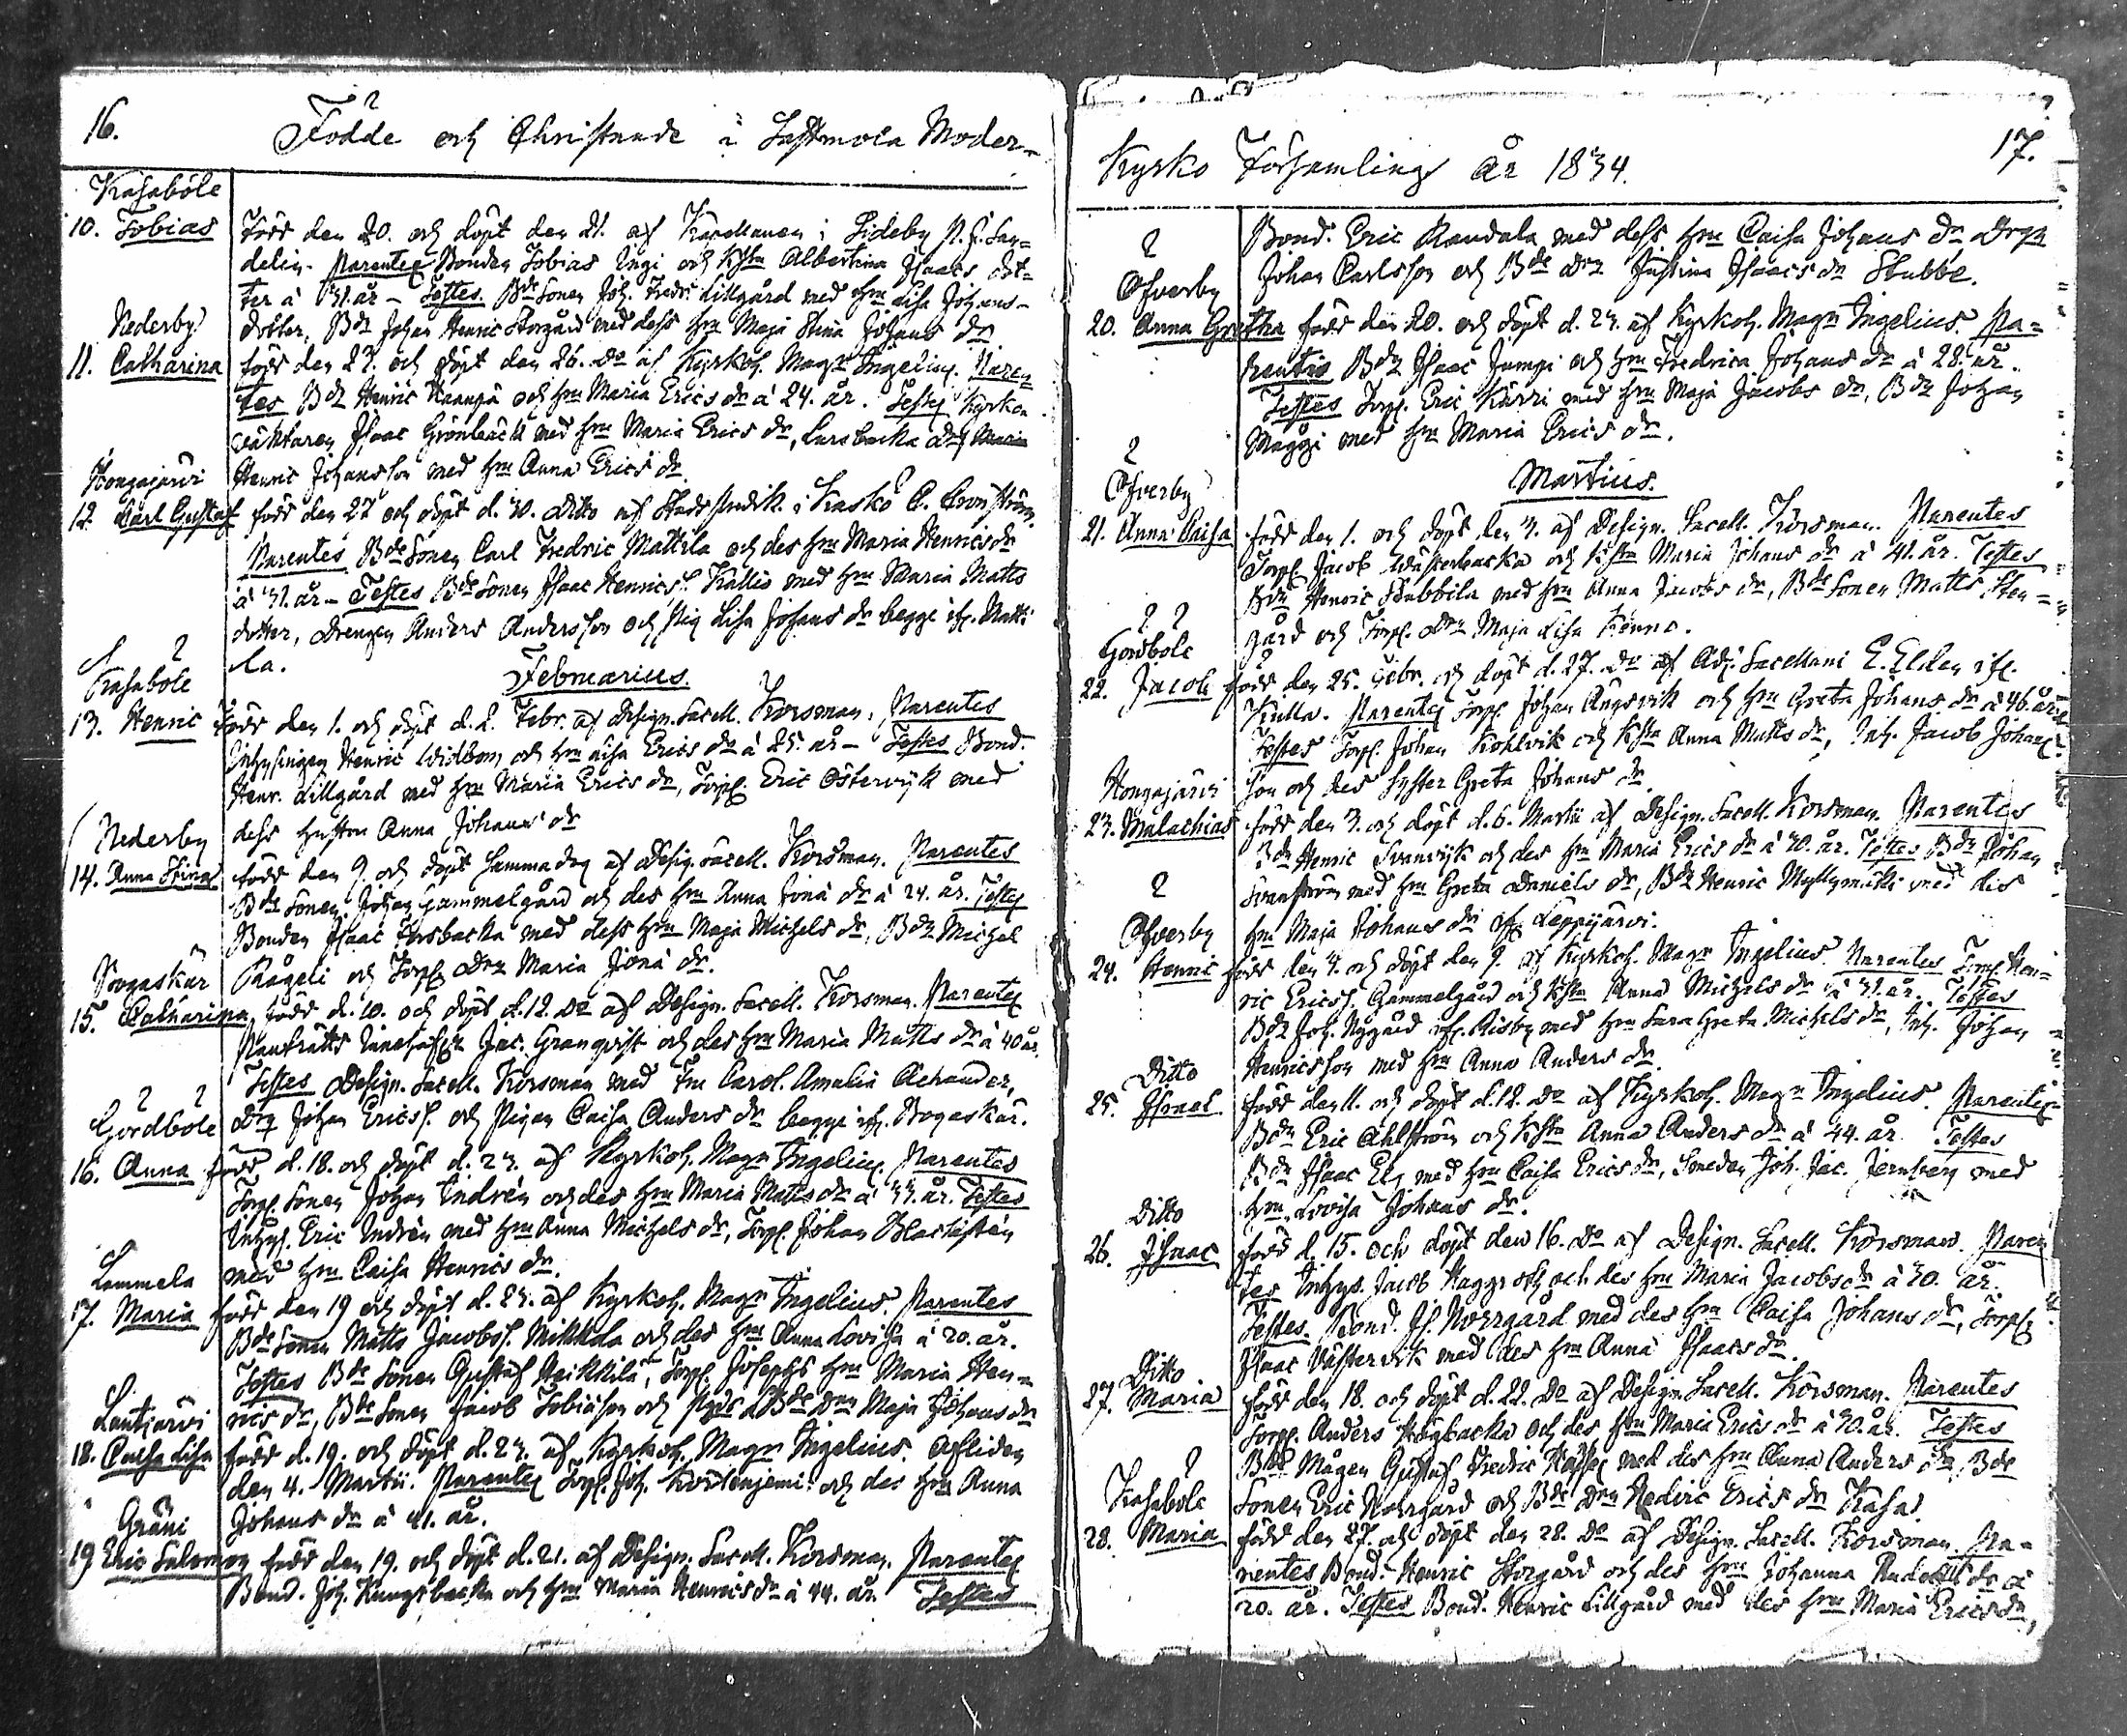 16.
Födde och Christnade i Lappmola Moder=
Kasaböle
10. Tobias född den 20. och döpt den 21. af Kapellanen i Sideby
delin. Parentes Bonden Tobias Ingi och hstn Albertina Isaacs dot=
ter à 31. år – Testes Bde Sonen Joh. Fredr. Lillgård med hrn Lisa Johans-
dotter, Bdn Johan Henric Storgård med dess hru Maja Stina Johans dr
Nederby
11. Catharina född den 23. och döpt den 26. do af Kyrkoh. Magr Ingelius. Paren
tes Bdn Henric Kaanga och hru Maria Erics dr à 24. år. Testes Kyrko
väktaren Isaac Grönback med hru Maria Erics dr, Larsbacka Drg Maria
Henric Johansson med hru Anna Erics dr
Hongajärvi
12. Carl Gustaf född den 27 och döpt d. 30. ditto af i Kaskö
Parentes Bde Sonen Carl Fredric Mattila och des hru Maria Henrics dr
à 31. år – Testes Bde Sonen Isaac Henricss. Kallio med hru Maria Matts
dotter, Drengen Anders Andersson och Pig. Lisa Johans dr begge ifr. Matti
la.
Februarius.
Kasaböle
13. Henric född den 1. och döpt d. 2. Febr. af Design. Sacell. Korsman. Parentes
Inhysingen Henric Widbom och hru Lisa Erics dr à 25. år – Testes Bond.
Henr. Lillgård med hru Maria Erics dr, Torp. Eric Östervik med
dess hustru Anna Johans dr
Nederby
14. Anna Stina född den 9. och döpt samma dag af Design. Sacell. Korsman. Parentes
Bde Sonen Johan Gammelgård och des hru Anna Jona dr à 24. år. Testes
Bonden Isaac Forsbacka med dess hru Maja Michels dr, Bdn Michel
Rågeli och Torp. Drn Maria Jona dr.
Skogaskär
15. Catharina född d. 10. och döpt d. 12. do af Design. Sacell. Korsman. Parentes
Jac. Granqvist och des hru Maria Matts dr à 40 år.
Testes Design. Sacell. Korsman med Fru Carol. Amalia
Drg Johan Ericss. och Pigan Caisa Anders dr begge ifr.
Gördböle
16. Anna född d. 18. och döpt d. 23. af Kyrkoh. Magr Ingelius. Parentes
Torp. Sonen Johan Indrén och des hru Maria Matts dr à 33. år. Testes
Inhys. Eric Indrén med hru Anna Michels dr, Torp. Johan
med hru Caisa Henrics dr.
Lammela
17. Maria född den 19 och döpt d. 23. af Kyrkoh. Magr Ingelius. Parentes
Bde Sonen Matts Jacobss. Mikkola och des hru Anna Lovisa à 20. år.
Testes Bde Sonen Gustaf Heikkilä, Torp. Josephs hru Maria Hen=
rics dr, Bde Sonen Jacob Tobiäson och Bde Drn Maja Johans dr
Lautjärvi
18. Caisa Lisa född d. 19. och döpt d. 23. af Kyrkoh. Magr Ingelius. Afliden
den 4. Martii. Parentes Torp. Joh. Kortenjemi och des hru Anna
Johans dr à 41. år.
Gräni
19 Eric Salomon född den 19. och döpt d. 21. af Design. Sacell. Korsman. Parentes
Bond. Joh. Kungsbacka och hru Maria Henrics dr à 44. år. Testes
17.
Kyrko Församling År 1834.
Bond. Eric Kandala med dess hru Caisa Johans dr Drgn
Johan Carlsson och Bde Drn Justina Isaacs dr Stubbe.
Öfverby
20. Anna Gretha född den 20. och döpt d. 23. af Kyrkoh. Magr Ingelius. Pa=
rentis Bdn Isaac Jumpi och hru Fredrica Johans dr à 28. år.
Testes Torp. Eric Kärri med hru Maja Jacobs dr, Bdn Johan
Maggi med hru Maria Erics dr.
Martius.
Öfverby
21. Anna Caisa född den 1. och döpt den 3. af Design. Sacell. Korsman. Parentes
Torp. Jacob Wästerbacka och hstn Maria Johans dr à 41. år. Testes
Bdn Henric Stubbila med hru Anna Jacobs dr, Bde Sonen Matts Sten=
gård och Torp. Drn Maja Lisa Henno.
Gördböle
22. Jacob född den 25. Febr. och döpt d. 27. do af Adj. Sacellani E. Elden ifr.
Kulla. Parentes Torp. Johan Ängsvik och hru Greta Johans dr à 46. år
Testes Torp. Johan Kohlvik och hstn Anna Matts dr, Inh. Jacob Johans
son och des Syster Greta Johans dr.
Hongajärvi
23. Malachias född den 3. och döpt d. 6. Martii af Design. Sacell. Korsman. Parentes
Bdn Henric Svanvik och des hru Maria Erics dr à 30. år. Testes Bdn Johan
Svanström med hru Greta Daniels dr, Bdn Henric Myllymäki med des
hru Maja Johans dr ifr. Leppijärvi.
Öfverby
24. Henric född den 4. och döpt den 9. af Kyrkoh. Magr Ingelius. Parentes Torp. Hen=
ric Ericss. Gammelgård och hstn Anna Michels dr à 31. år. Testes
Bdn Joh. Nygård ifr. Risby med hru Sara Greta Michels dr, Inh. Johan
Henricsson med hru Anna Anders dr.
Ditto
25. Ismael född den 11. och döpt d. 12. do af Kyrkoh. Magr Ingelius. Parentis
Bdn Eric Ahlström och hstn Anna Anders dr à 44. år Testes
Bdn Isaac Elg med hru Caisa Erics dr, Smeden Joh. Jac. Jernberg med
hru Lovisa Johans dr.
Ditto
26. Isaac född d. 15. och döpt den 16. do af Design. Sacell. Korsman. Paren
tes Inhys. Jacob och des hru Maria Jacobs dr à 30. år.
Testes. Bond. Is. Norrgård med des hru Caisa Johans dr, Torp.
Isaac Västervik med des hru Anna Isaacs dr.
Ditto
27. Maria född den 18. och döpt d. 22. do af Design. Sacell. Korsman. Parentes
Torp. Anders Högbacka och des hru Maria Erics dr à 30. år. Testes
Bde Mågen Gustaf Fredric med des hru Anna Anders dr, Bde
Sonen Eric Norrgård och Bde Drn Hedvic Erics dr Kasa.
Kasaböle
28. Maria född den 27. och döpt den 28. do af Design. Sacell. Korsman. Pa=
rientes Bond. Henric Storgård och des hru Johanna dr à
20. år. Testes Bond. Henric Lillgård med des hru Maria Erics dr,